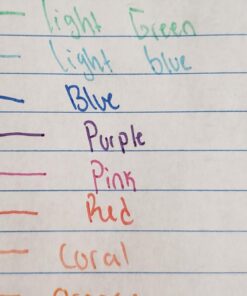 light Green
light blue
Blue
Purple
Pink
Red
Coral